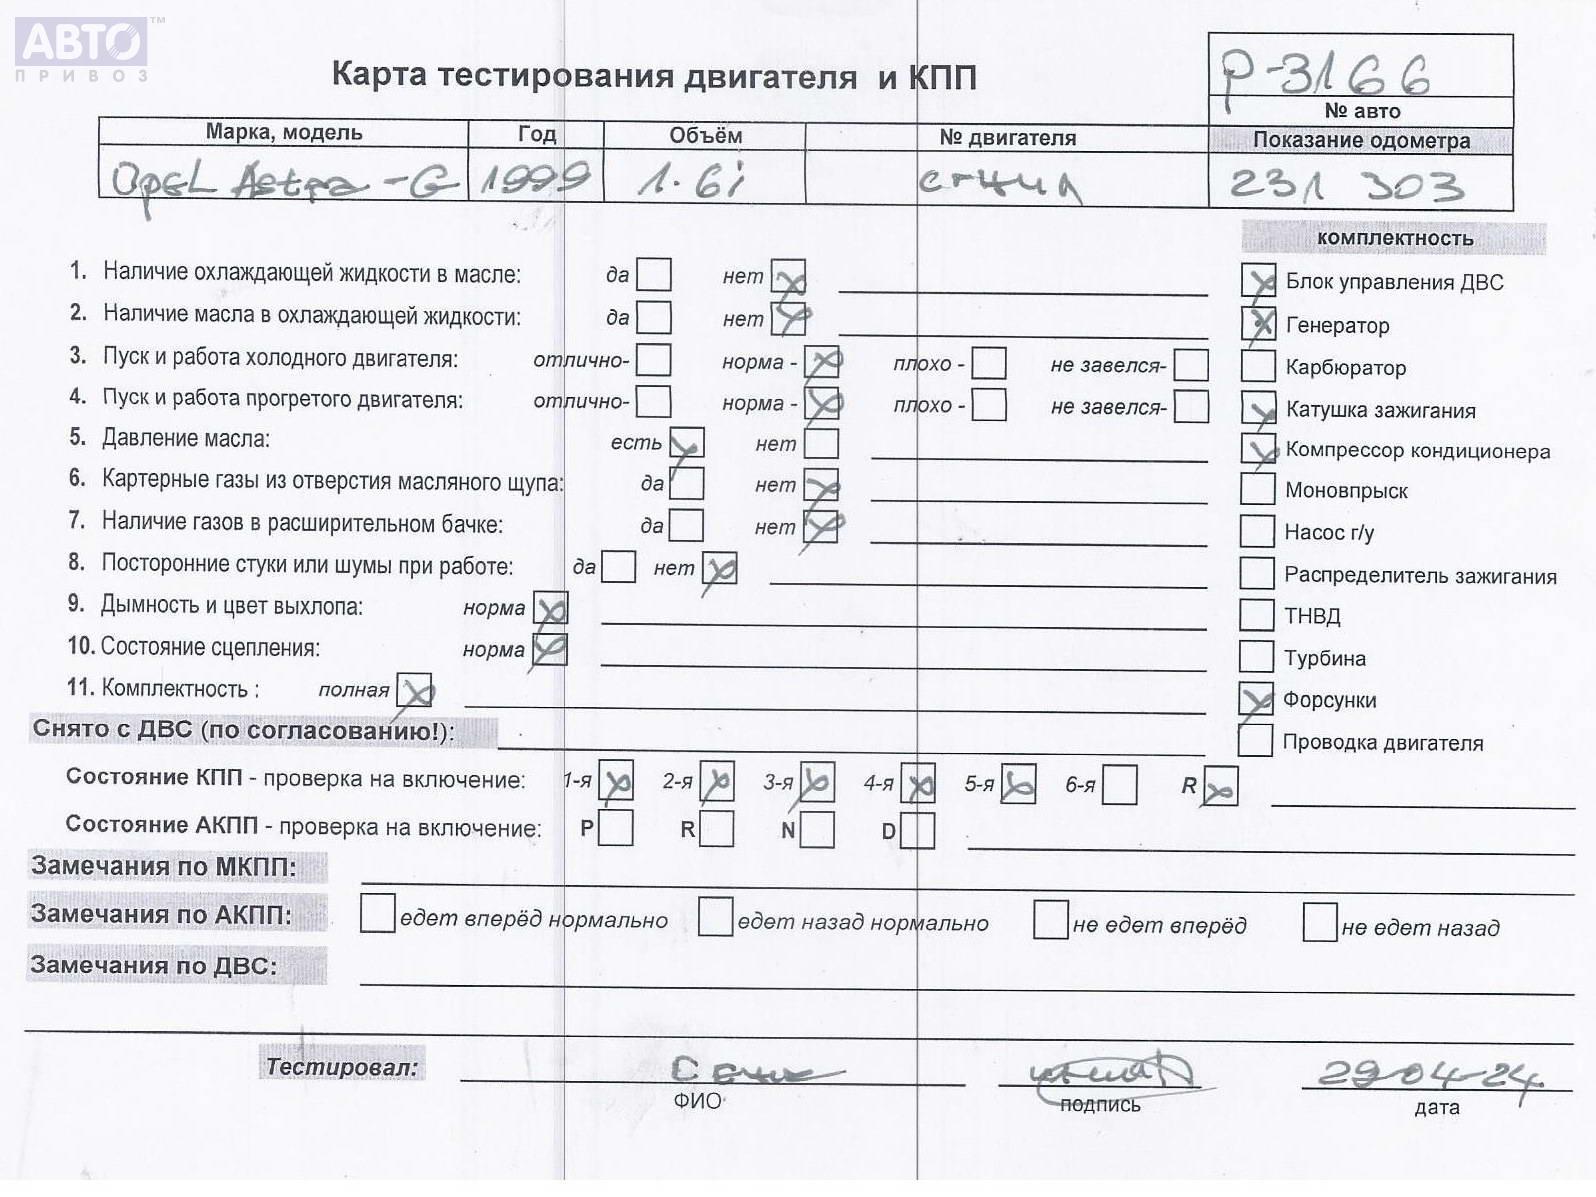 АВТО ТМ
ПРИВОЗ
Карта тестирования двигателя и КПП
Р-3166
№ авто
Марка, модель Год Объём № двигателя Показание одометра
Opel Astra-G 1999 1.6i 231 303
комплектность
1. Наличие охлаждающей жидкости в масле: да нет
Блок управления ДВС
2. Наличие масла в охлаждающей жидкости: да нет
Генератор
3. Пуск и работа холодного двигателя: отлично- норма - плохо - не завелся-
Карбюратор
4. Пуск и работа прогретого двигателя: отлично- норма - плохо - не завелся-
Катушка зажигания
5. Давление масла: есть нет
Компрессор кондиционера
6. Картерные газы из отверстия масляного щупа: да нет
Моновпрыск
7. Наличие газов в расширительном бачке: да нет
Насос г/у
8. Посторонние стуки или шумы при работе: да нет
Распределитель зажигания
9. Дымность и цвет выхлопа: норма
ТНВД
10. Состояние сцепления: норма
Турбина
11. Комплектность : полная
Форсунки
Снято с ДВС (по согласованию!):
Проводка двигателя
Состояние КПП - проверка на включение: 1-я 2-я 3-я 4-я 5-я 6-я R
Состояние АКПП - проверка на включение: P R N D
Замечания по МКПП:
Замечания по АКПП: едет вперёд нормально едет назад нормально не едет вперёд не едет назад
Замечания по ДВС:
Тестировал: 29-04-24
ФИО подпись дата